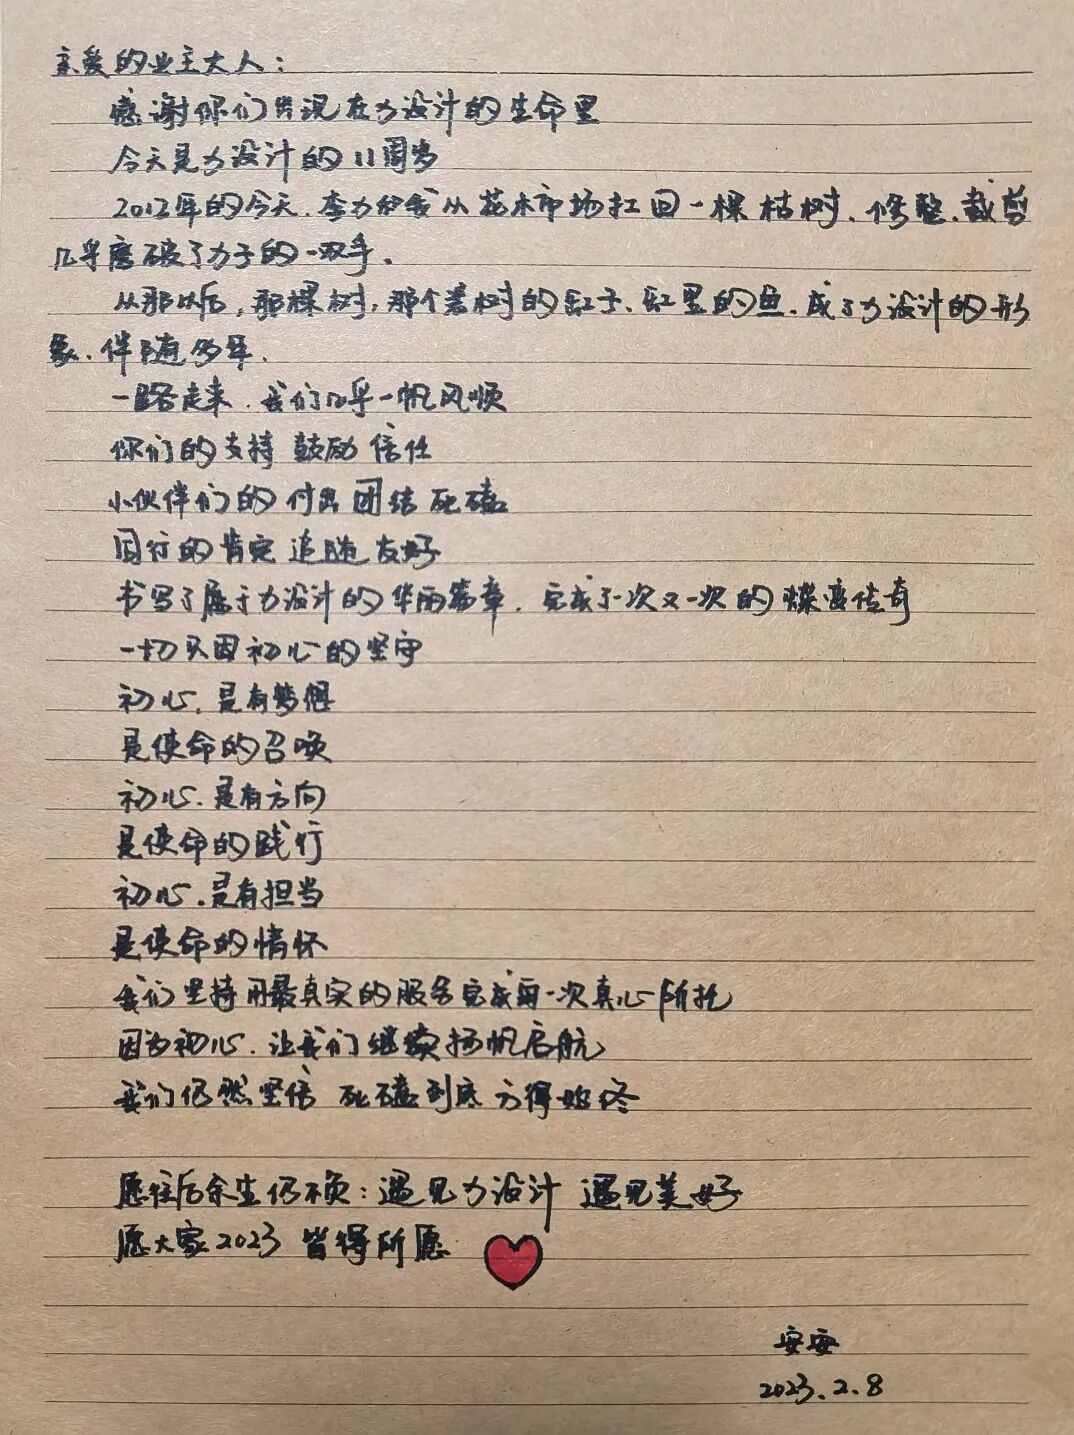 亲爱的业主大人：
感谢你们出现在力设计的生命里
今天是力设计的11周岁
2012年的今天，李力和我从花木市场扛回一棵枯树、修整、裁剪
几乎磨破了力子的一双手。
从那以后，那棵树，那个养树的缸子、缸里的鱼，成了力设计的形
象、伴随多年。
一路走来，我们几乎一帆风顺
你们的支持 鼓励 信任
小伙伴们的付出 团结 死磕
同行的肯定 追随 友好
书写了属于力设计的华丽篇章，完成了一次又一次的蝶变传奇
一切只因初心的坚守
初心，是有梦想
是使命的召唤
初心，是有方向
是使命的践行
初心，是有担当
是使命的情怀
我们坚持用最真实的服务完成每一次真心所托
因为初心，让我们继续扬帆启航
我们仍然坚信 死磕到底 方得始终
愿往后余生仍不负：遇见力设计 遇见美好
愿大家2023 皆得所愿
安安
2023.2.8